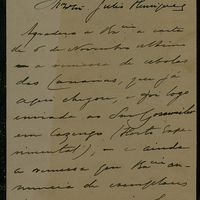 Julio Henriques
Agradeço a V. Ex.cia a carta
de 6 de Novembro ultimo
e a remessa de cebolas
das Cananas, que já
aqui chegou, e foi logo
enviada ao Snr. Gossweiler
em Cazengo (Horto Expe-
rimental), — e ainda
a remessa que V. Ex.cia an-
nuncia de exemplares